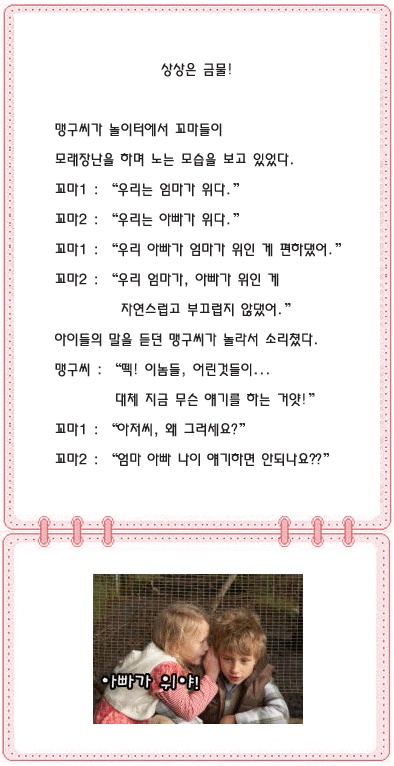 상상은 금물!
맹구씨가 놀이터에서 꼬마들이
모래장난을 하며 노는 모습을 보고 있었다.
꼬마1 : “우리는 엄마가 위다.”
꼬마2 : “우리는 아빠가 위다.”
꼬마1 : “우리 아빠가 엄마가 위인 게 편하댔어.”
꼬마2 : “우리 엄마가, 아빠가 위인 게
자연스럽고 부끄럽지 않댔어.”
아이들의 말을 듣던 맹구씨가 놀라서 소리쳤다.
맹구씨 : “떽! 이놈들, 어린것들이...
대체 지금 무슨 얘기를 하는 거얏!”
꼬마1 : “아저씨, 왜 그러세요?”
꼬마2 : “엄마 아빠 나이 얘기하면 안되나요??”
아빠가 위야!